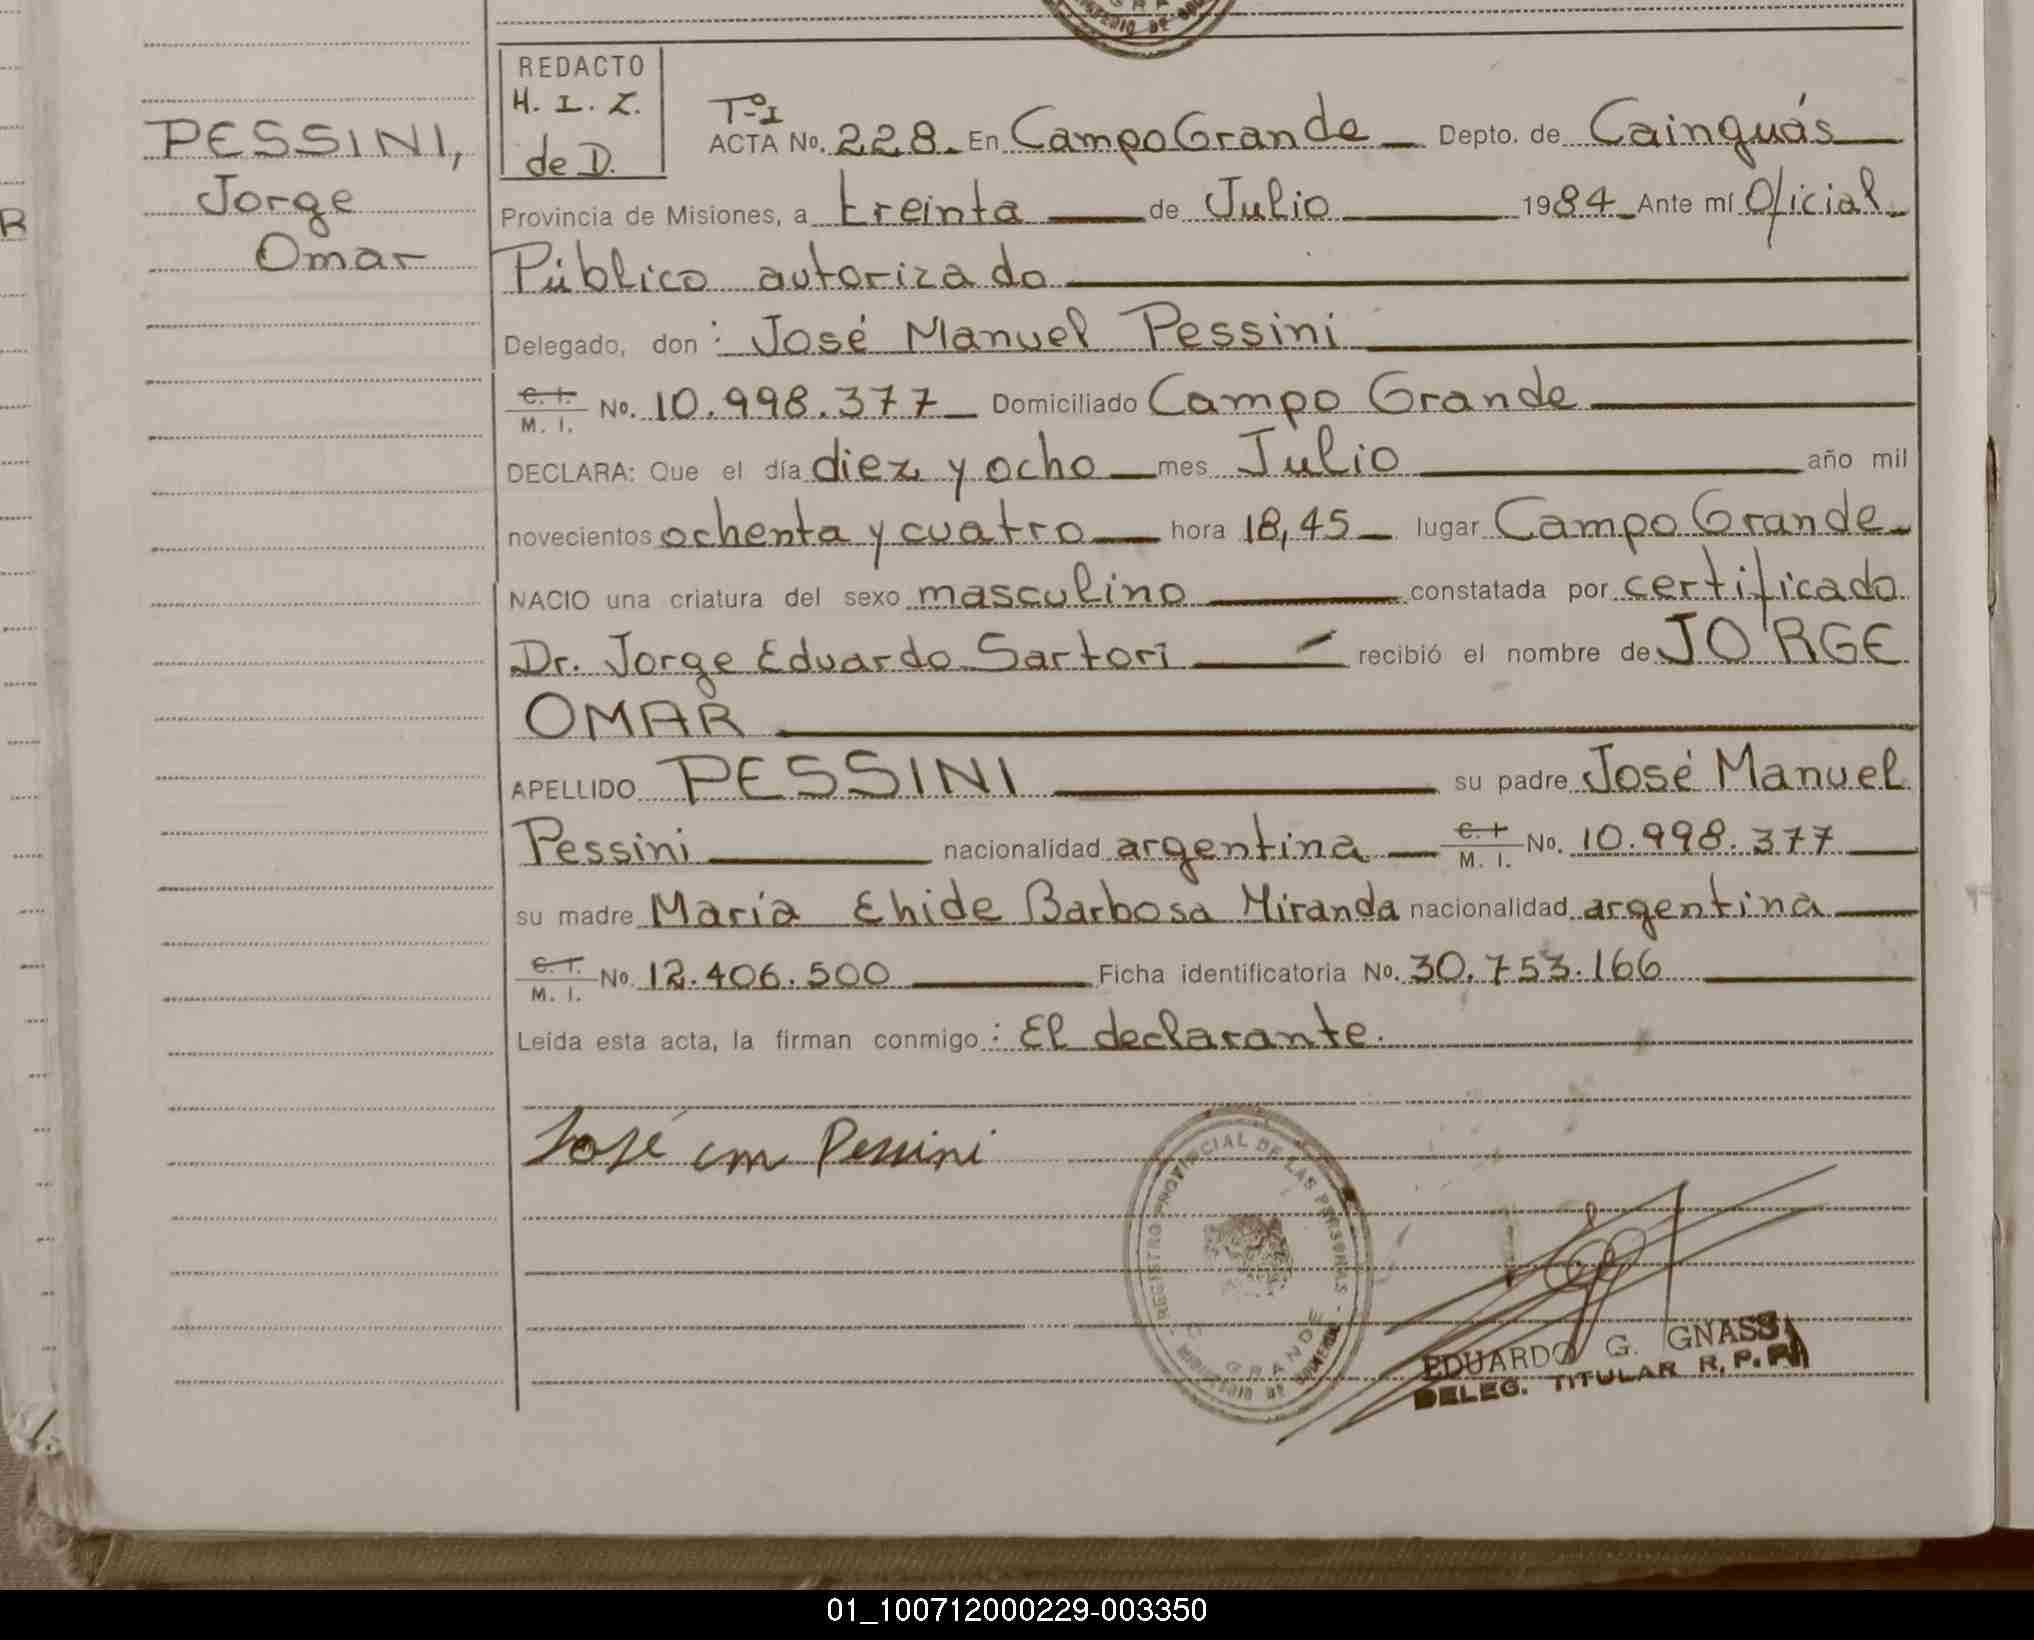 PESSINI,
Jorge
Omar
REDACTO
H. I. Z.
de D.
Tº I
ACTA No. 228. En Campo Grande Depto. de Cainguás
Provincia de Misiones, a treinta de Julio 1984 Ante mí Oficial
Público autorizado
Delegado, don : José Manuel Pessini
C. I. M. I. No. 10.998.377 Domiciliado Campo Grande
DECLARA: Que el día diez y ocho mes Julio año mil
novecientos ochenta y cuatro hora 18,45 lugar Campo Grande
NACIO una criatura del sexo masculino constatada por certificado
Dr. Jorge Eduardo Sartori recibió el nombre de JORGE
OMAR
APELLIDO PESSINI su padre José Manuel
Pessini nacionalidad argentina C. I M. I. No. 10.998.377
su madre María Ehide Barbosa Miranda nacionalidad argentina
C. I. M. I. No. 12.406.500 Ficha identificatoria No. 30.753.166
Leída esta acta, la firman conmigo : El declarante.
José m Pessini
REGISTRO PROVINCIAL DE LAS PERSONAS
GRANDE
EDUARDO G. GNASS
DELEG. TITULAR R. P. P.
01_100712000229-003350